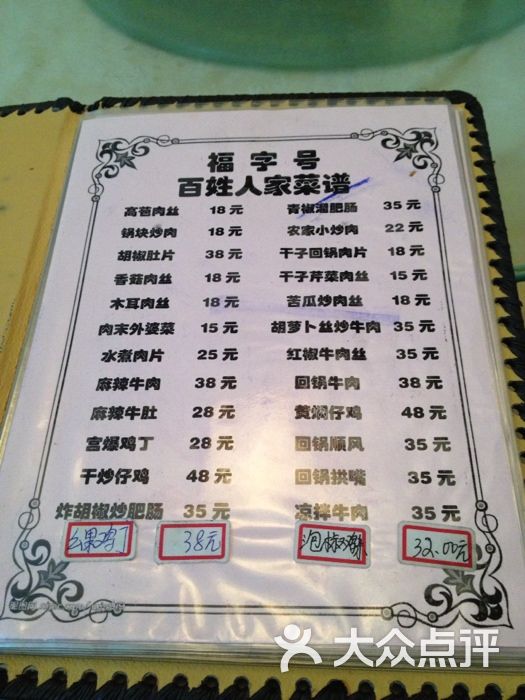 福字号
百姓人家菜谱
高苞肉丝 18元 青椒溜肥肠 35元
锅块炒肉 18元 农家小炒肉 22元
胡椒肚片 38元 干子回锅肉片 18元
香菇肉丝 18元 干子芹菜肉丝 15元
木耳肉丝 18元 苦瓜炒肉丝 18元
肉末外婆菜 15元 胡萝卜丝炒牛肉 35元
水煮肉片 25元 红椒牛肉丝 35元
麻辣牛肉 38元 回锅牛肉 38元
麻辣牛肚 28元 黄焖仔鸡 48元
宫爆鸡丁 28元 回锅顺风 35元
干炒仔鸡 48元 回锅拱嘴 35元
炸胡椒炒肥肠 35元 凉拌牛肉 35元
果鸡丁 38元 泡椒 32.00元
大众点评